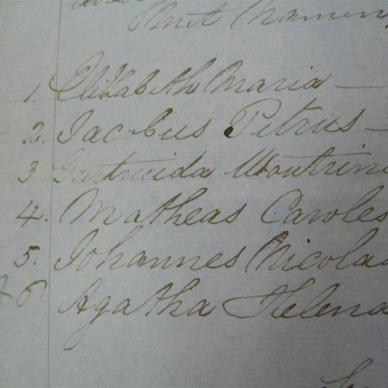 1. Elizabeth Maria —
2. Jacobus Petrus —
3 Geertruida Woutrin
4. Matheas Caroles
5. Johannes Nicola
6. Agatha Helena